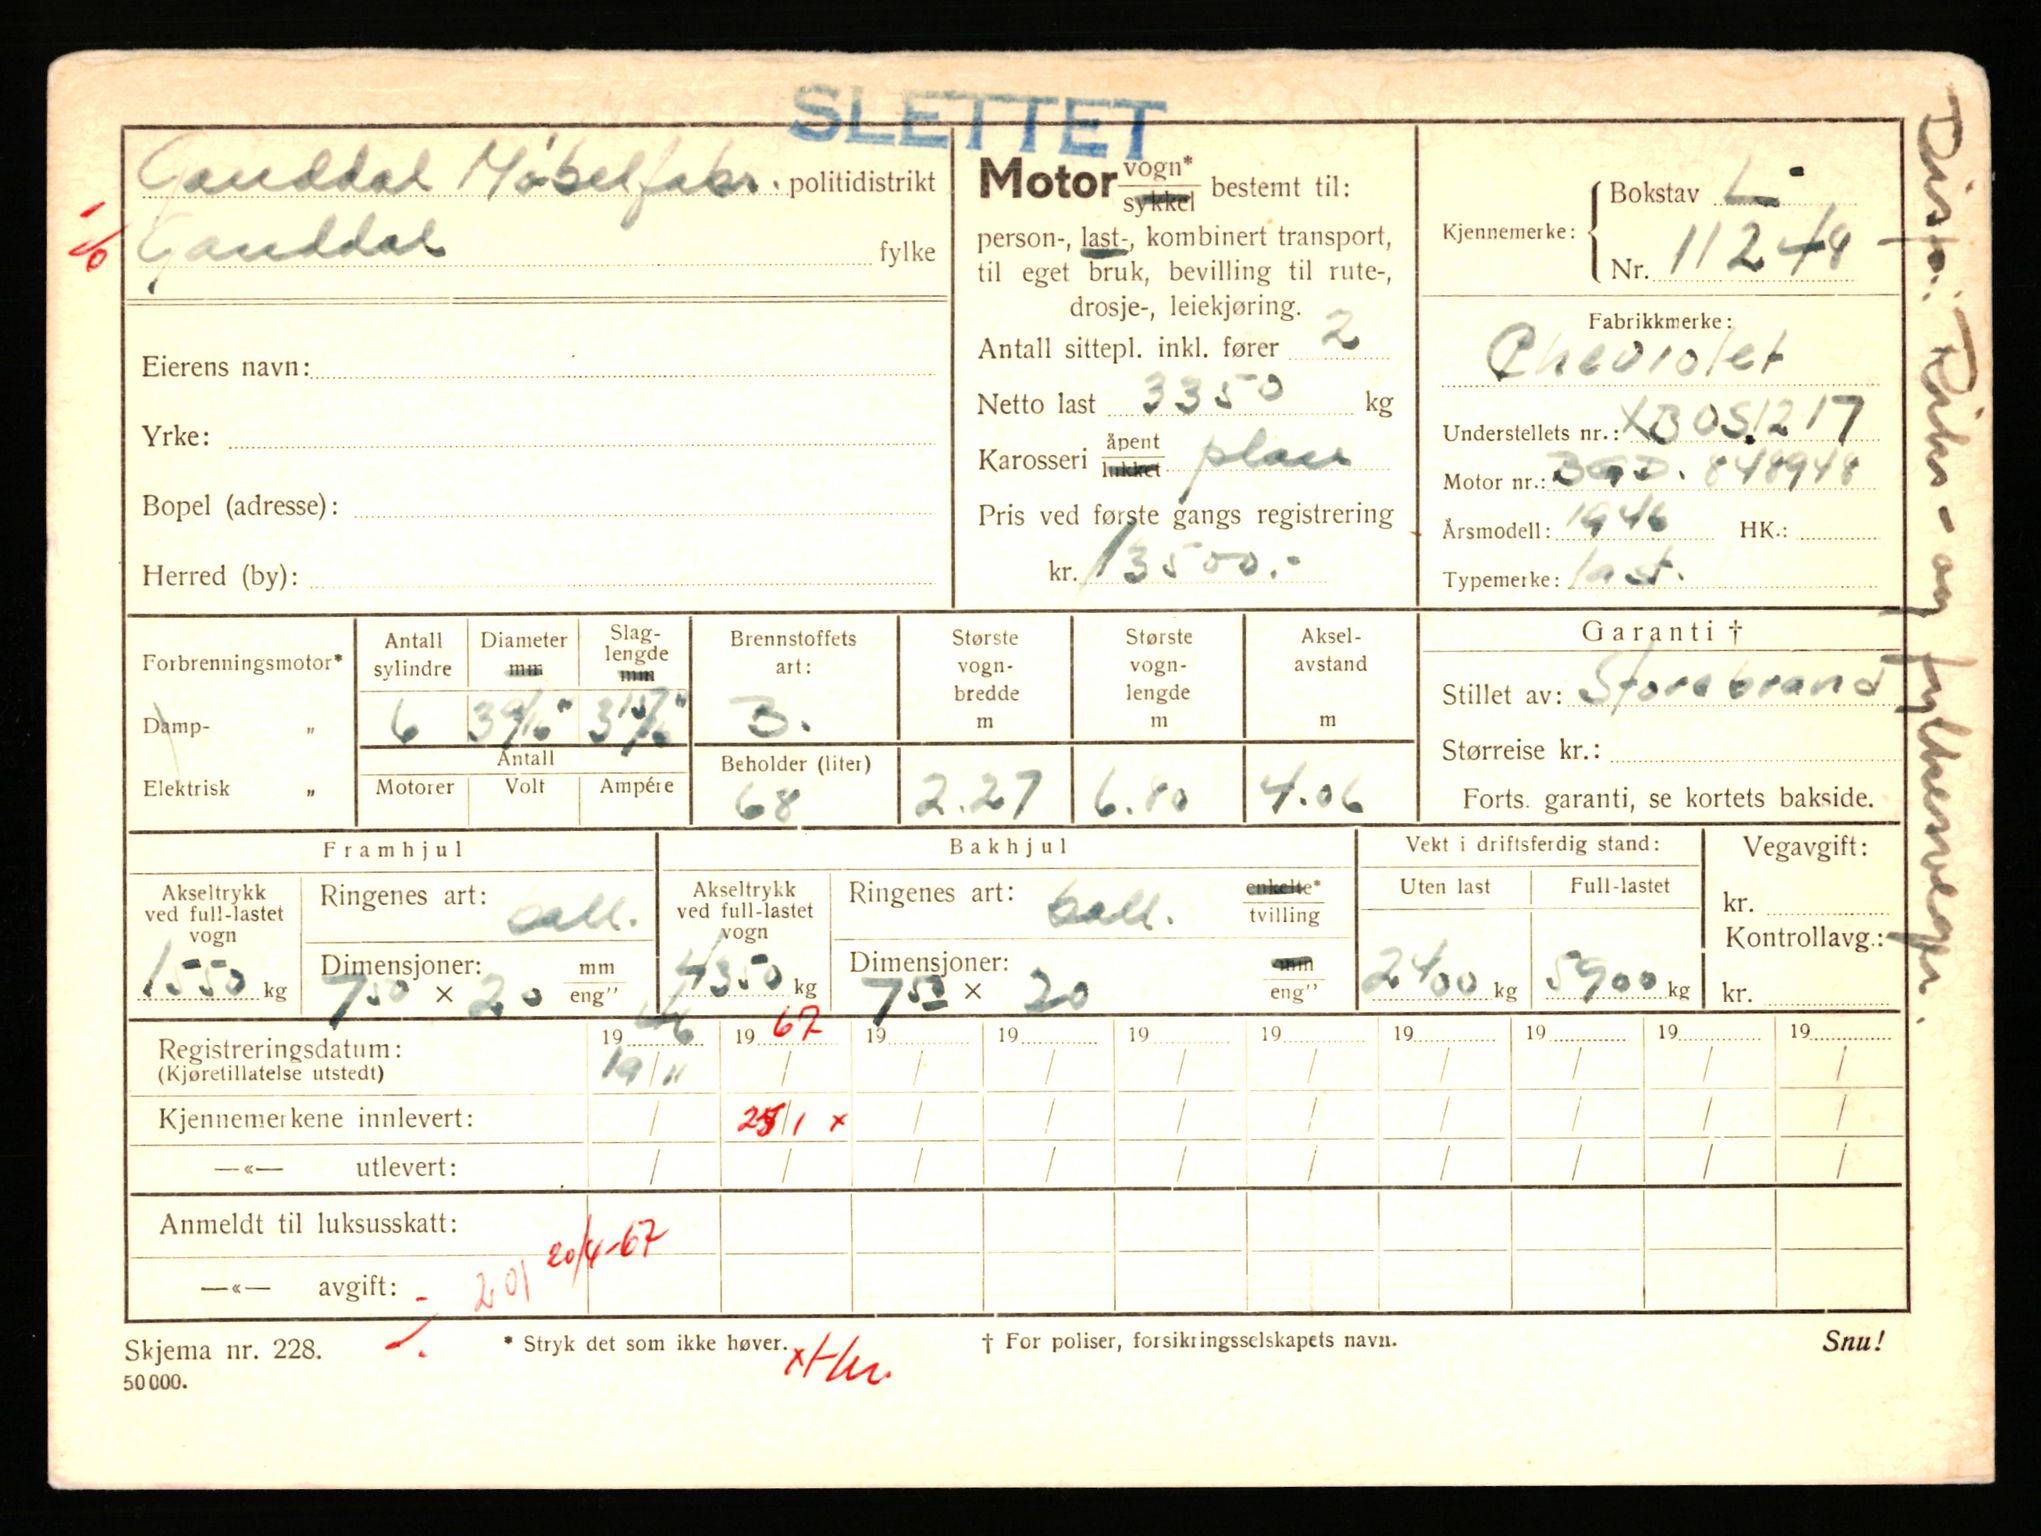 SLETTET
Ganddal Møbelfabr. politidistrikt
Ganddal fylke
Eierens navn:
Yrke:
Bopel (adresse):
Herred (by):
Motor vogn* sykkel bestemt til:
person-, last-, kombinert transport,
til eget bruk, bevilling til rute-,
drosje-, leiekjøring.
Antall sittepl. inkl. fører 2
Netto last 3350 kg
Karosseri åpent lukket plan
Pris ved første gangs registrering
kr. 13500.-
Kjennemerke: Bokstav L-
Nr. 11248
Fabrikkmerke:
Cheviolet
Understellets nr.: XBOS1217
Motor nr.: BGD. 848948
Årsmodell: 1946 HK.:
Typemerke: last.
Disp. Riks- og fylkesveger.
Forbrenningsmotor*
Damp- „
Elektrisk „
Antall sylindre
6
Diameter mm
3 9/16"
Slag-lengde mm
3 15/16"
Antall
Motorer Volt Ampére
Brennstoffets art:
B.
Beholder (liter)
68
Største vogn-bredde m
2.27
Største vogn-lengde m
6.80
Aksel-avstand m
4.06
Garanti †
Stillet av: Storebrand
Størreise kr.:
Forts. garanti, se kortets bakside.
Framhjul
Akseltrykk ved full-lastet vogn
1550 kg
Ringenes art: ball.
Dimensjoner: mm eng"
750 × 20
Bakhjul
Akseltrykk ved full-lastet vogn
4350 kg
Ringenes art: ball. enkelte* tvilling
Dimensjoner: mm eng"
750 × 20
Vekt i driftsferdig stand:
Uten last Full-lastet
2400 kg 5900 kg
Vegavgift:
kr.
Kontrollavg.:
kr.
19 46 19 67 19 19 19 19 19 19 19 19
Registreringsdatum: 19/11 / / / / / / / / /
(Kjøretillatelse utstedt)
Kjennemerkene innlevert: / 25/1 x / / / / / / / /
—«— utlevert: / / / / / / / / / /
Anmeldt til luksusskatt:
20/4-67
—«— avgift: 201
Skjema nr. 228.
50 000.
* Stryk det som ikke høver.
† For poliser, forsikringsselskapets navn.
Snu!